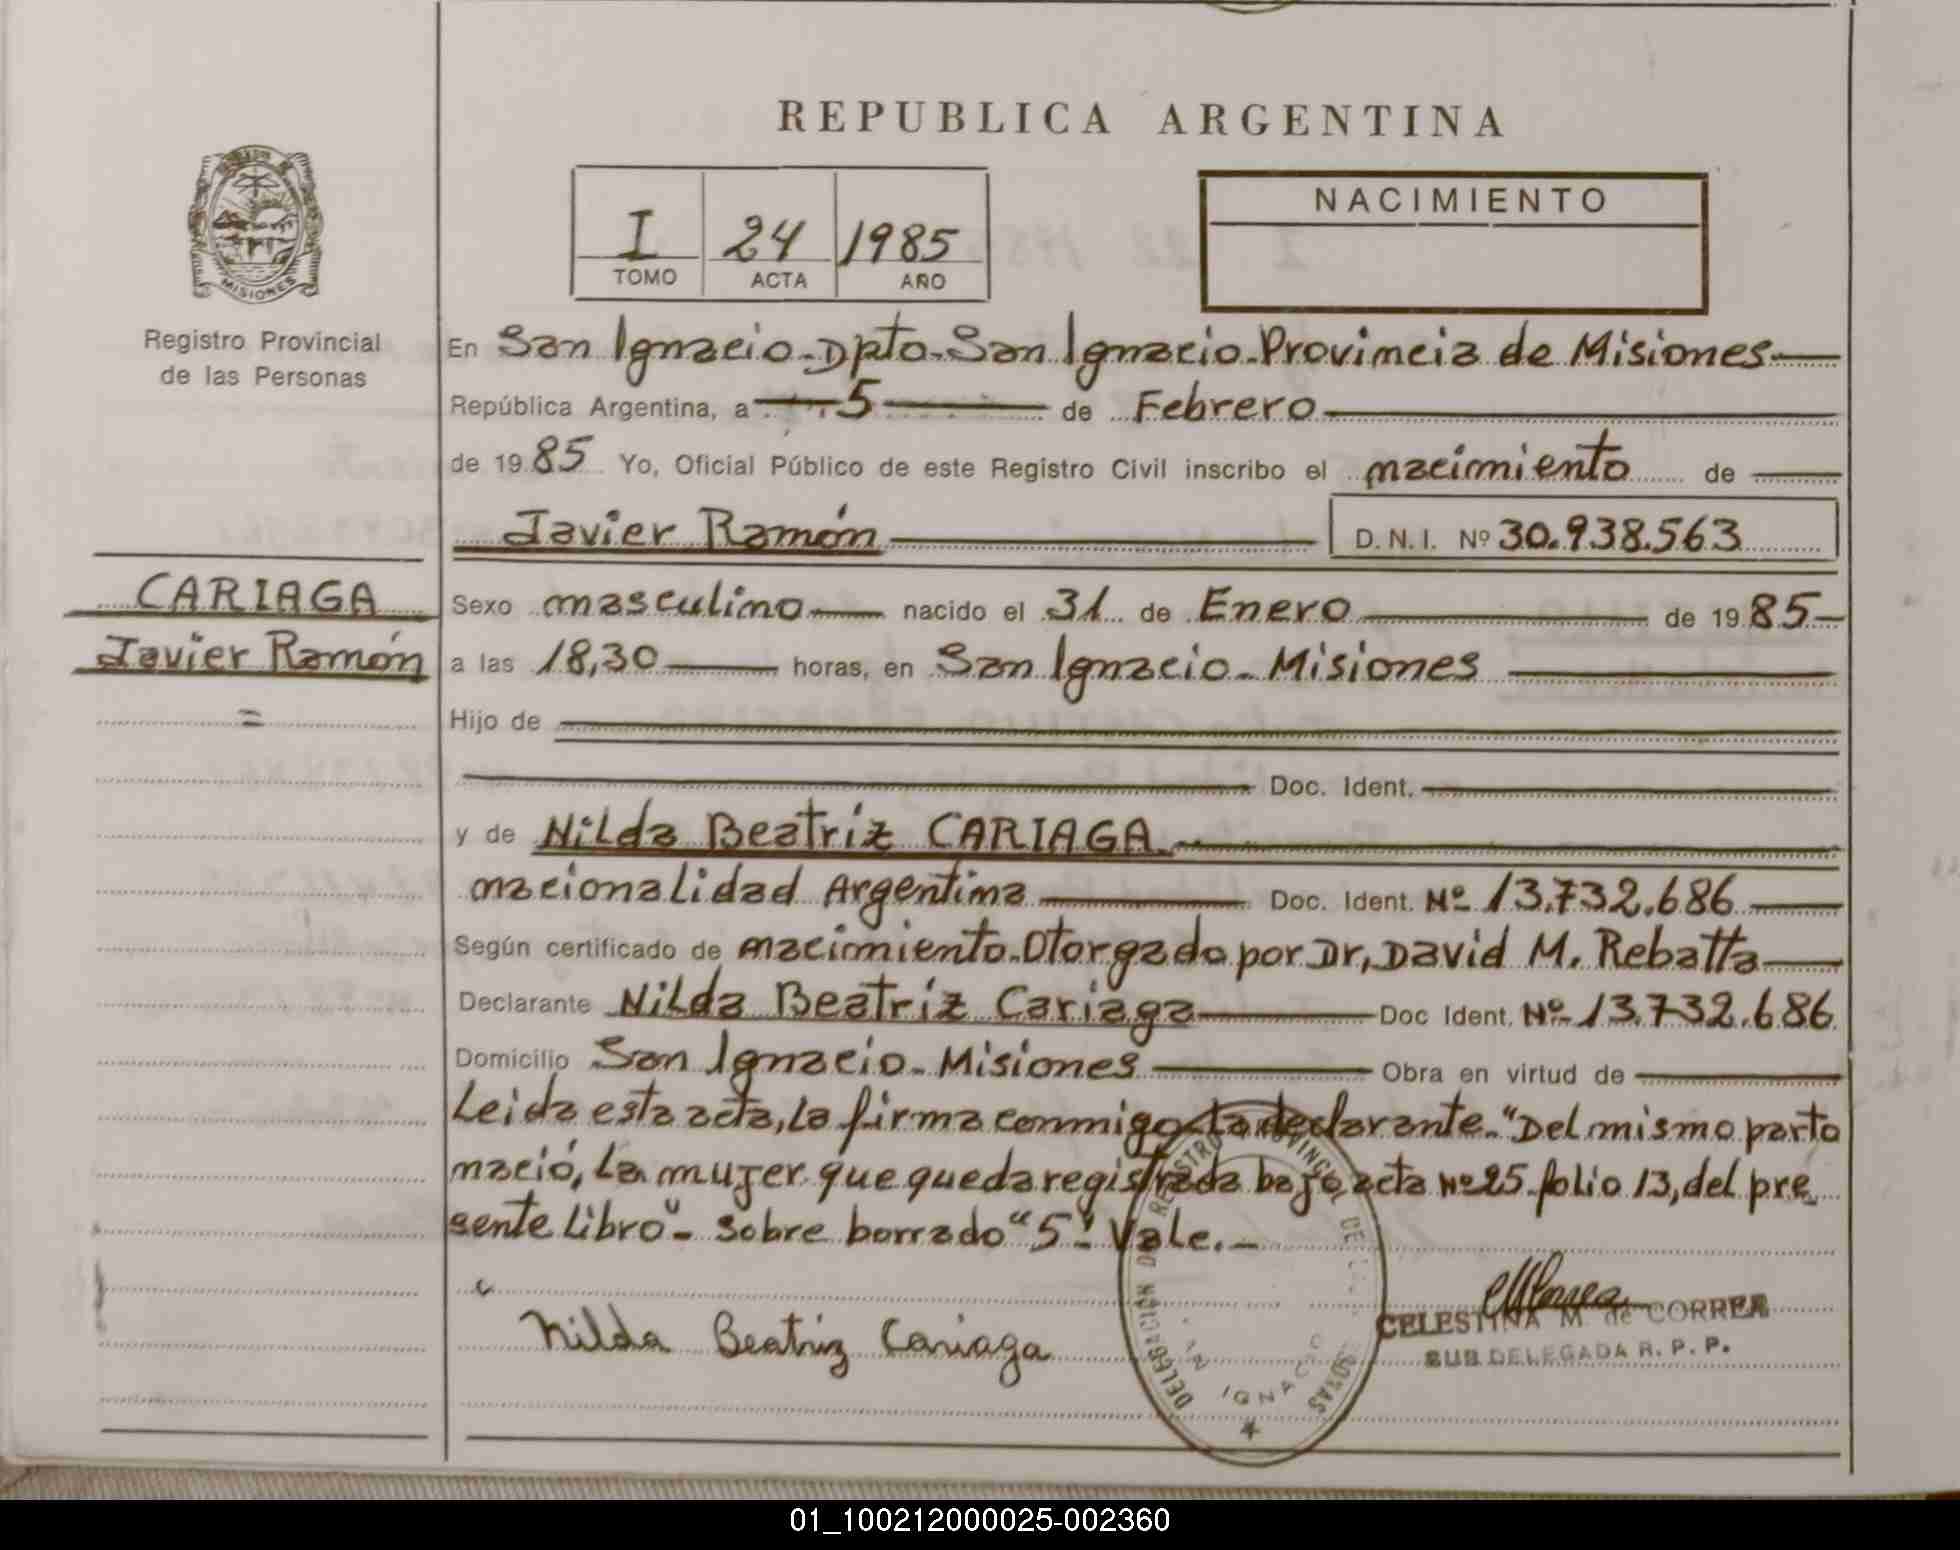 REPUBLICA ARGENTINA
MISIONES
Registro Provincial
de las Personas
I 24 1985
TOMO ACTA AÑO
NACIMIENTO
En San Ignacio-Dpto-San Ignacio-Provincia de Misiones
República Argentina, a 5 de Febrero
de 1985 Yo, Oficial Público de este Registro Civil inscribo el nacimiento de
Javier Ramón D.N.I. Nº 30.938.563
CARIAGA
Javier Ramón
=
Sexo masculino nacido el 31 de Enero de 1985
a las 18,30 horas, en San Ignacio- Misiones
Hijo de
Doc. Ident.
y de Nilda Beatriz CARIAGA
nacionalidad Argentina Doc. Ident. Nº 13.732.686
Según certificado de nacimiento-Otorgado por Dr, David M. Rebatta
Declarante Nilda Beatríz Cariaga Doc Ident. Nº-13.732.686
Domicilio San Ignacio- Misiones Obra en virtud de
Leida esta acta, la firma conmigo la declarante-"Del mismo parto
nació, la mujer que queda registrada bajo acta Nº25-folio 13, del pre
sente libro"- Sobre borrado "5" Vale.-
Nilda Beatriz Cariaga
CELESTINA M. de CORREA
SUB DELEGADA R. P. P.
DELEGACION
IGNACIO
01_100212000025-002360